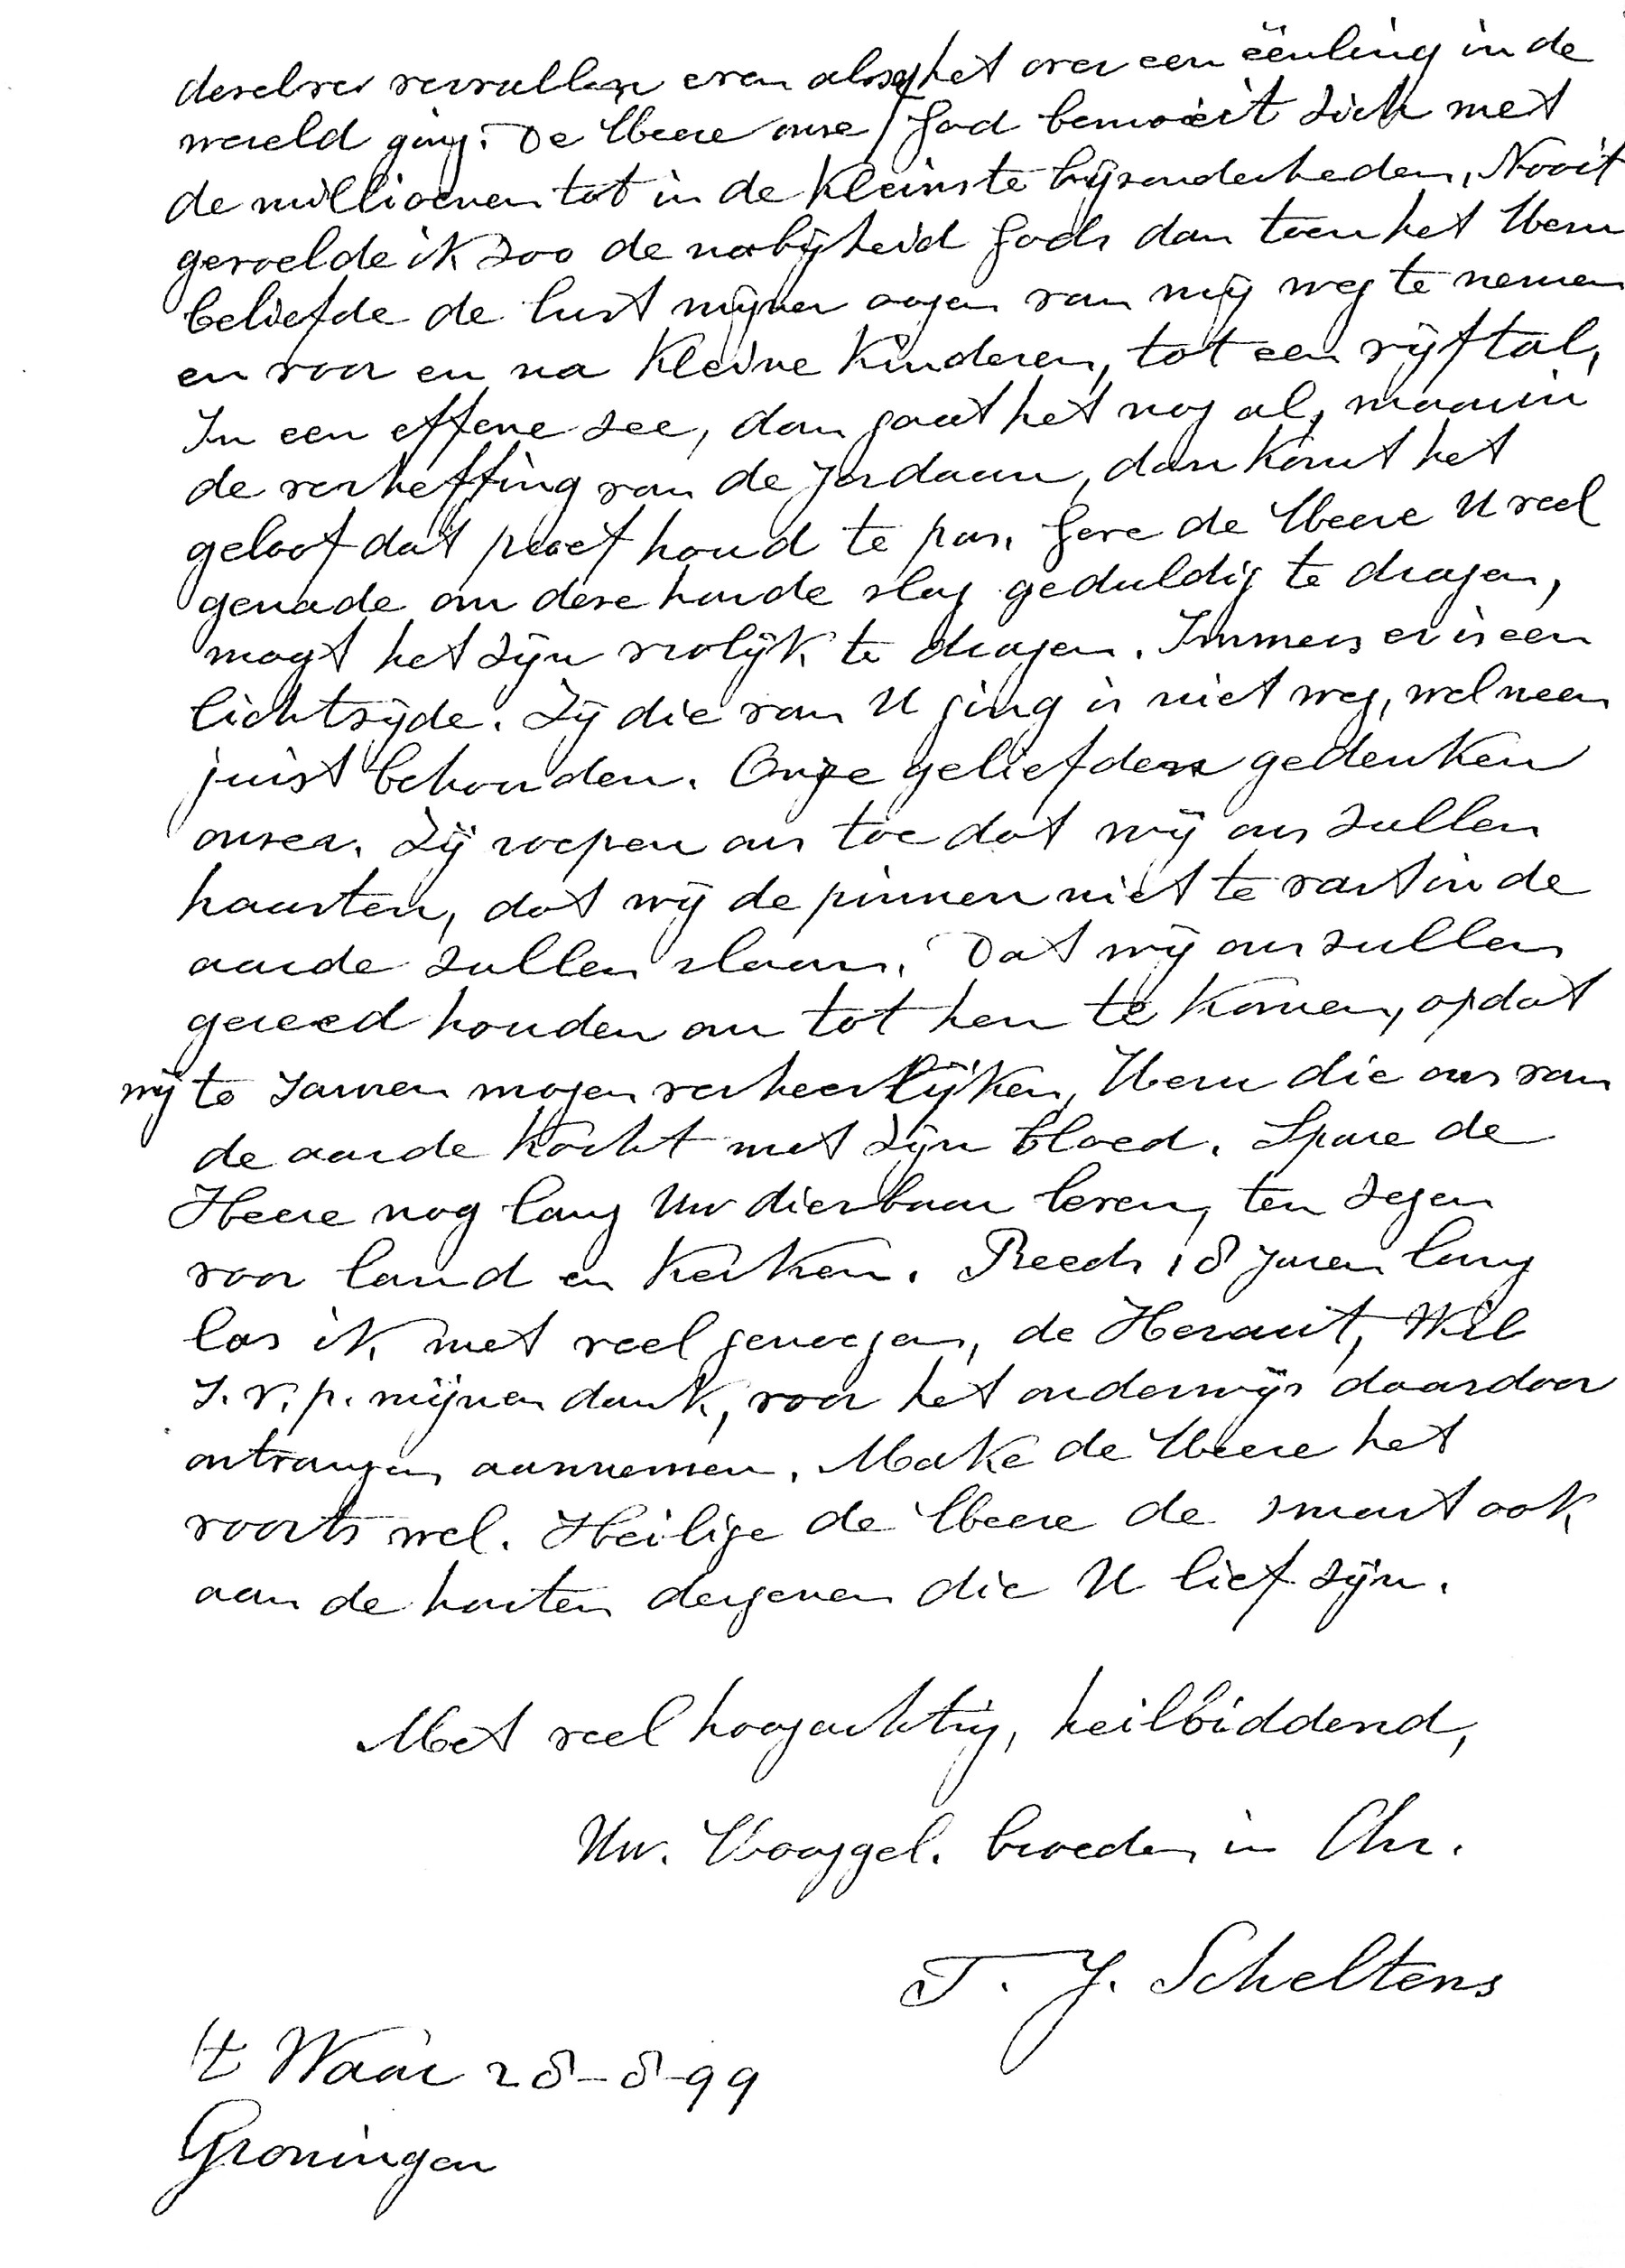 derzelver vervullen even alsof het over een ëënling in de
wereld ging. De Heere onze God bemoeit zich met
de millioenen tot in de kleinste bijzonderheden, Nooit
gevoelde ik zoo de nabijheid Gods dan toen het Hem
beliefde de lust mijner oogen van mij weg te nemen
en voor en na kleine kinderen, tot een vijftal,
In een effene zee, dan gaat het nog al, maar in
de verheffing van de Jordaan, dan komt het
geloof dat proef houd te pas. Geve de Heere U veel
genade om deze harde slag geduldig te dragen,
mogt het zijn vrolijk te dragen. Immers er is een
lichtzijde. Zij die van U ging is niet weg, wel neen
juist behouden. Onze geliefden gedenken
onzer. Zij roepen ons toe dat wij ons zullen
haasten, dat wij de pinnen niet te vast in de
aarde zullen slaan. Dat wij ons zullen
gereed houden om tot hen te komen, opdat
wij te zamen mogen verheerlijken, Hem die ons van
de aarde kocht met zijn bloed. Spare de
Heere nog lang Uw dierbaar leven, ten zegen
voor land en kerken. Reeds 18 jaren lang
las ik met veel genoegen, de Heraut, Wil
s.v.p. mijnen dank, voor het onderwijs daardoor
ontvangen aannemen. Make de Heere het
voorts wel. Heilige de Heere de smart ook
aan de harten dergenen die U lief zijn.
Met veel hoogachting, heilbiddend,
Uw. Hooggel. broeder in Chr.
T. J. Scheltens
't Waar 28-8-99
Groningen